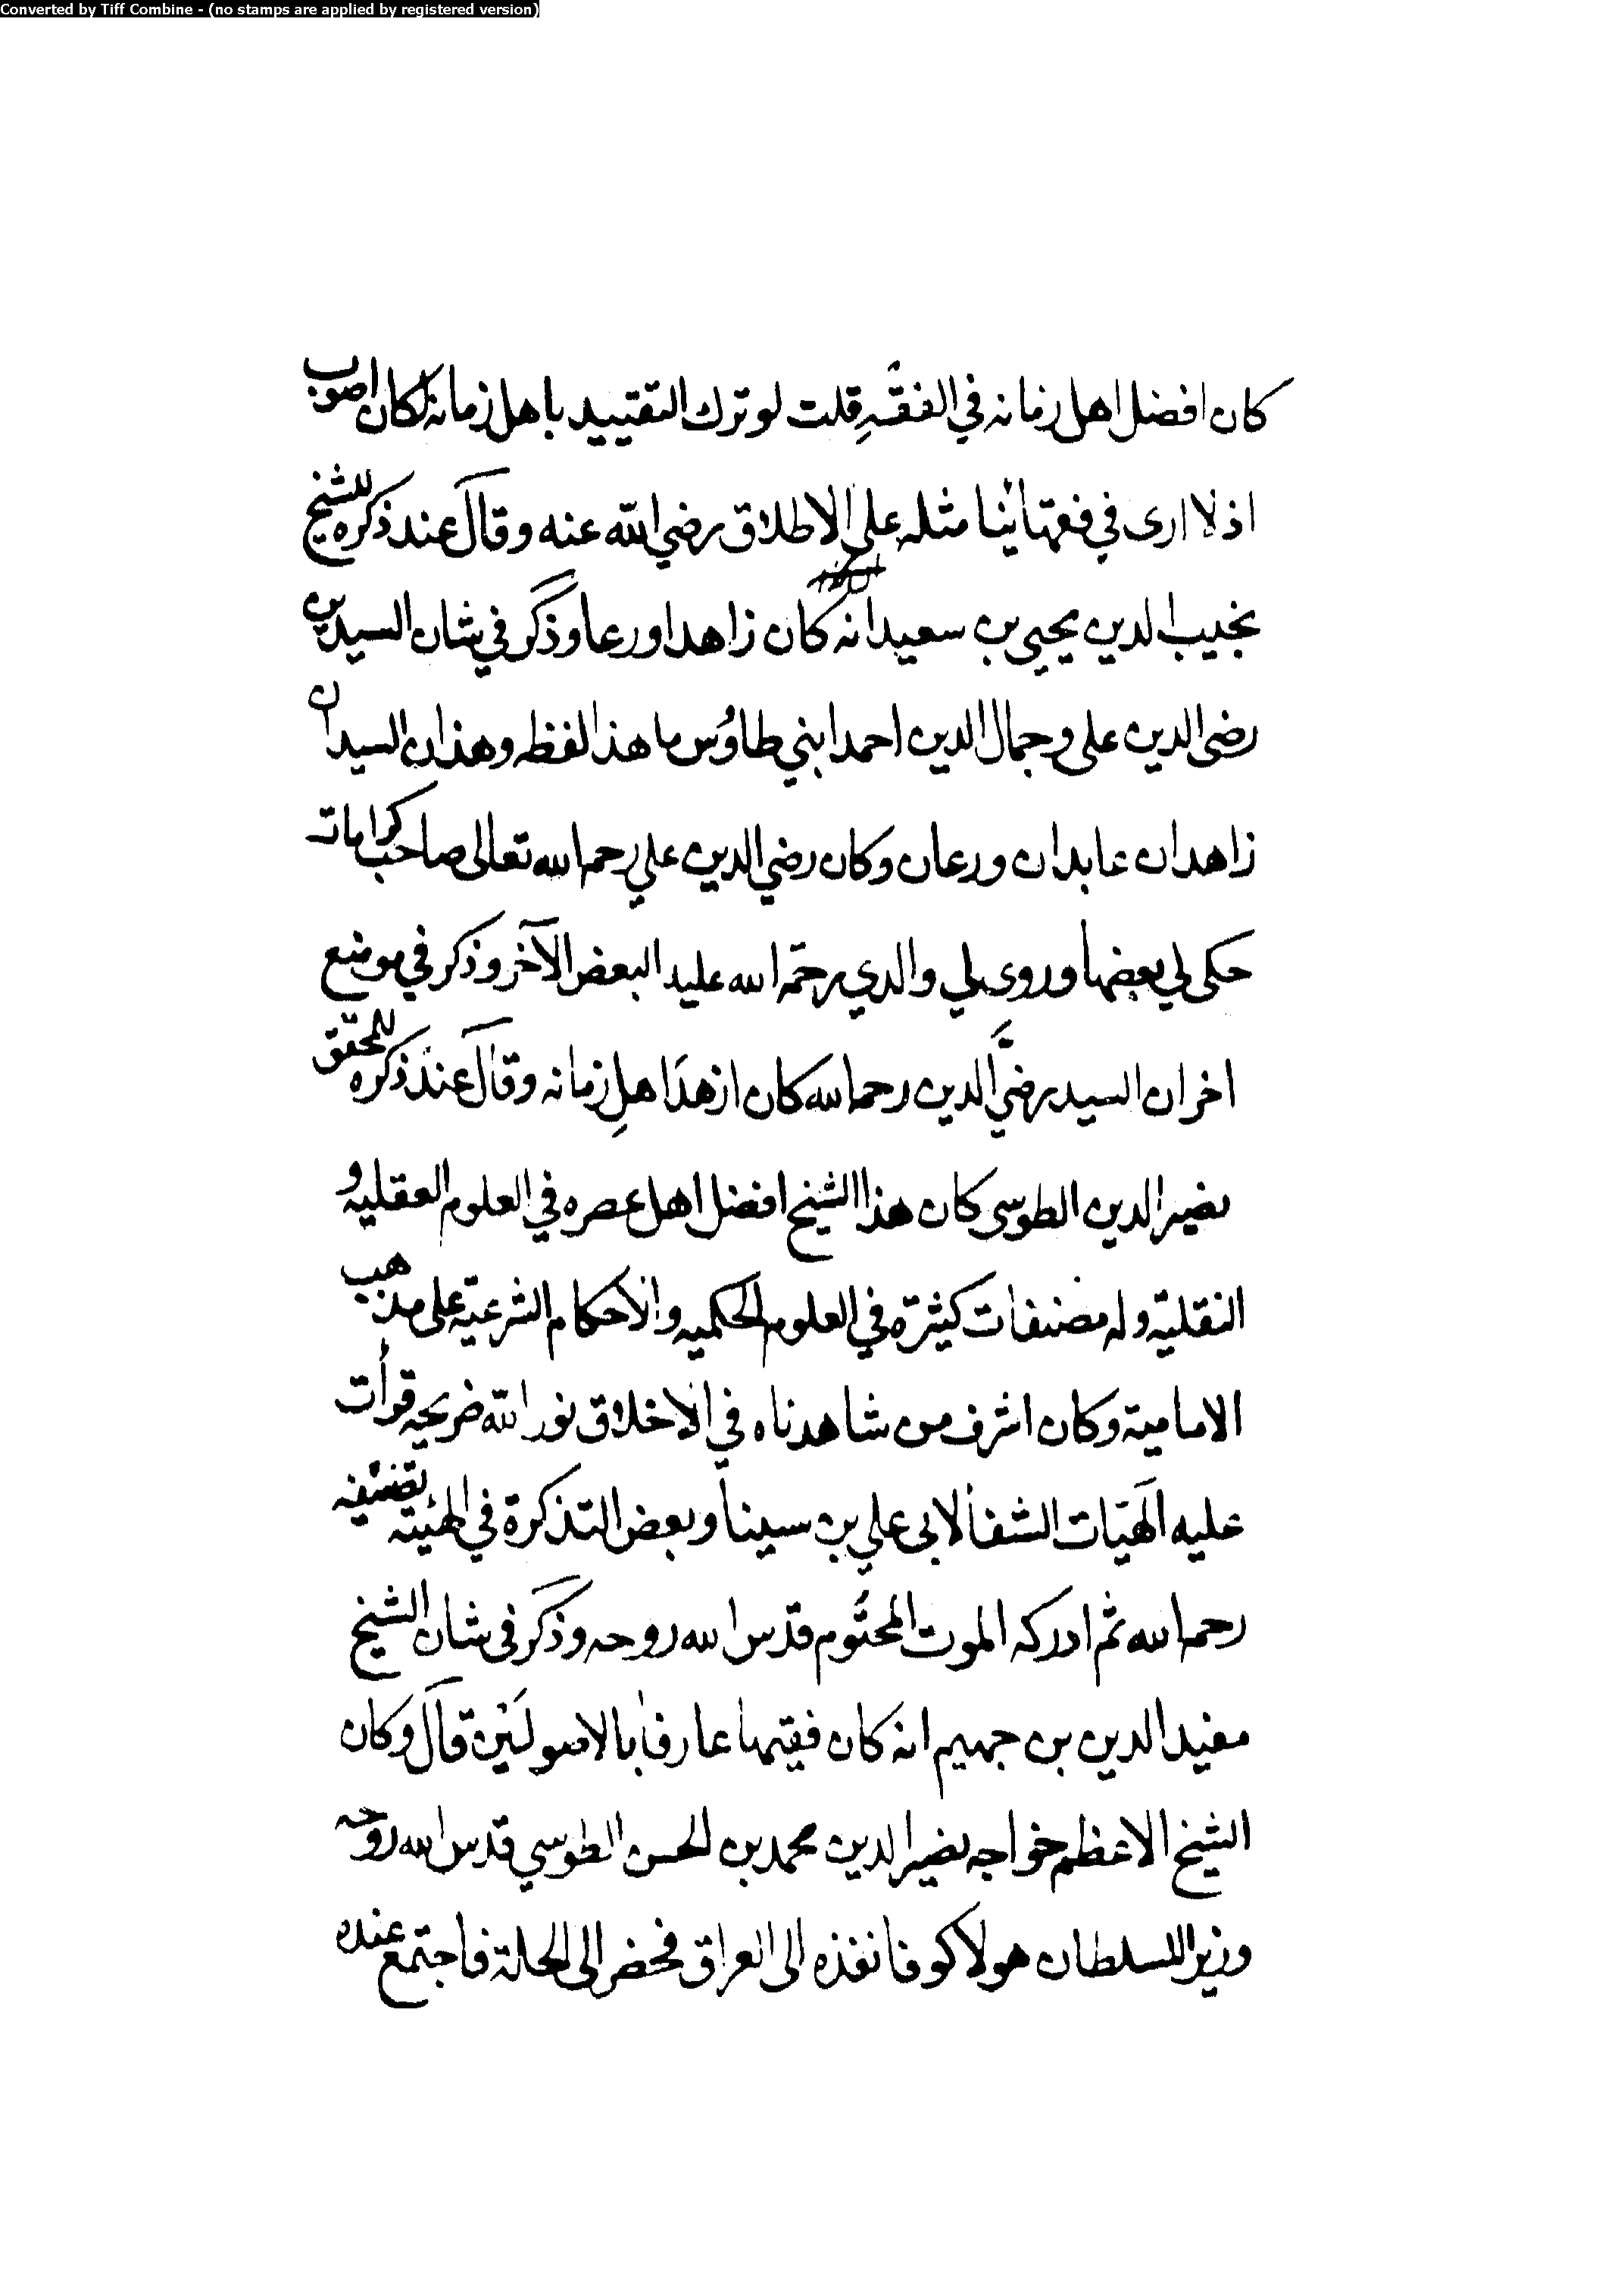 Converted by Tiff Combine - (no stamps are applied by registered version)
كان افضل اهل زمانه في الفقه قلت لو ترك التقييد باهل زمانه لكان اصوب
اذ لا ارى في فقهائنا مثله على الاطلاق رضي الله عنه وقال عند ذكره للشيخ
نجيب الدين يحيى بن سعيد انه كان زاهدا ورعا وذكر في شان السيدين
رضى الدين على وجمال الدين احمد ابني طاوس ما هذا لفظه وهذان السيدان
زاهدان عابدان ورعان وكان رضي الدين علي رحمه الله تعالى صاحب كرامات
حكى لي بعضها وروى لي والدي رحمه الله عليه البعض الآخر وذكر في موضع
اخر ان السيد رضي الدين رحمه الله كان ازهد اهل زمانه وقال عند ذكره للمحقق
نصير الدين الطوسى كان هذا الشيخ افضل اهل عصره في العلوم العقليه و
النقلية وله مصنفات كثيرة في العلوم الحكميه والاحكام الشرعية على مذهب
الامامية وكان اشرف من شاهدناه في الاخلاق نور الله ضريحه قرأت
عليه الهيات الشفا لابى علي بن سينا وبعض التذكرة في الهيئة تصنيفه
رحمه الله ثم ادركه الموت المحتوم قدس الله روحه وذكر فى شان الشيخ
مفيد الدين بن جهيم انه كان فقيها عارفا بالاصولين قال وكان
الشيخ الاعظم خواجه نصير الدين محمد بن الحسن الطوسي قدس الله روحه
وزير للسلطان هولاكو فانفذه الى العراق فحضر الى الحلة فاجتمع عنده